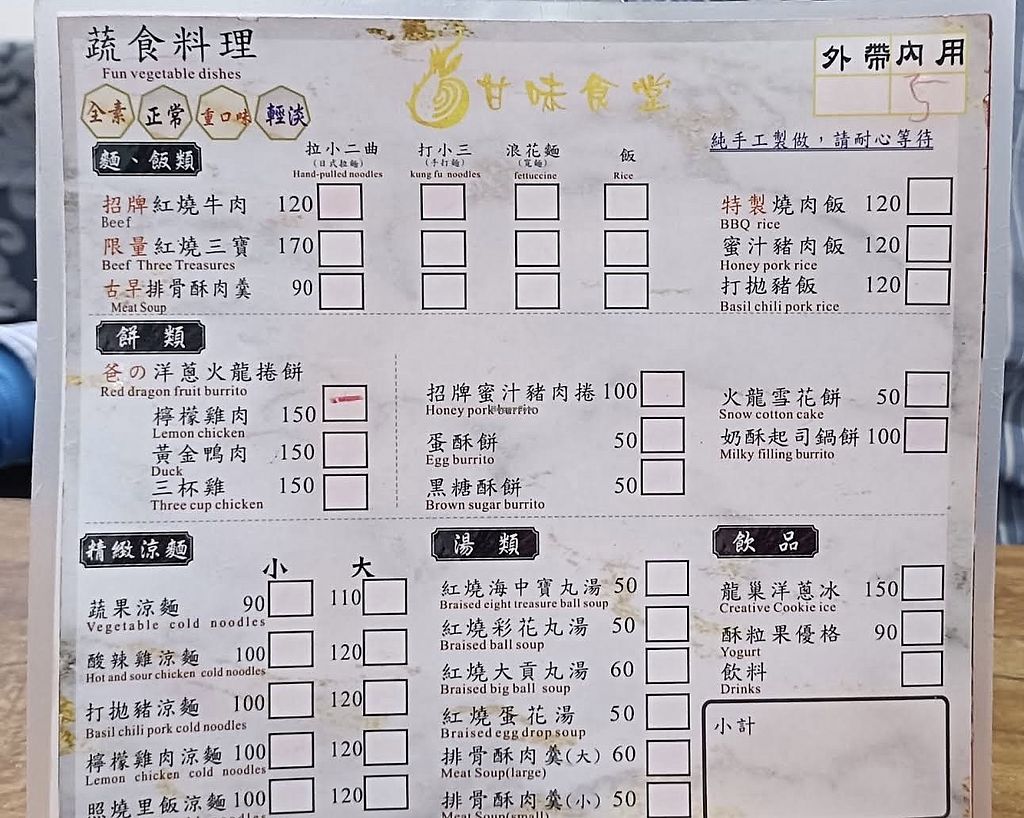 蔬食料理
Fun vegetable dishes
全素 正常 重口味 輕淡
甘味食堂
外帶 內用
5
純手工製做，請耐心等待
麵、飯類
拉小二曲 打小三 浪花麵 飯
(日式拉麵) (手打麵) (寬麵)
Hand-pulled noodles kung fu noodles fettuccine Rice
招牌紅燒牛肉 120
Beef
限量紅燒三寶 170
Beef Three Treasures
古早排骨酥肉羹 90
Meat Soup
特製燒肉飯 120
BBQ rice
蜜汁豬肉飯 120
Honey pork rice
打拋豬飯 120
Basil chili pork rice
餅類
爸の洋蔥火龍捲餅
Red dragon fruit burrito
檸檬雞肉 150
Lemon chicken
黃金鴨肉 150
Duck
三杯雞 150
Three cup chicken
招牌蜜汁豬肉捲 100
Honey pork burrito
蛋酥餅 50
Egg burrito
黑糖酥餅 50
Brown sugar burrito
火龍雪花餅 50
Snow cotton cake
奶酥起司鍋餅 100
Milky filling burrito
精緻涼麵
小 大
蔬果涼麵 90 110
Vegetable cold noodles
酸辣雞涼麵 100 120
Hot and sour chicken cold noodles
打拋豬涼麵 100 120
Basil chili pork cold noodles
檸檬雞肉涼麵 100 120
Lemon chicken cold noodles
照燒里飯涼麵 100 120
湯類
紅燒海中寶丸湯 50
Braised eight treasure ball soup
紅燒彩花丸湯 50
Braised ball soup
紅燒大貢丸湯 60
Braised big ball soup
紅燒蛋花湯 50
Braised egg drop soup
排骨酥肉羹(大) 60
Meat Soup(large)
排骨酥肉羹(小) 50
Meat Soup(small)
飲品
龍巢洋蔥冰 150
Creative Cookie ice
酥粒果優格 90
Yogurt
飲料
Drinks
小計